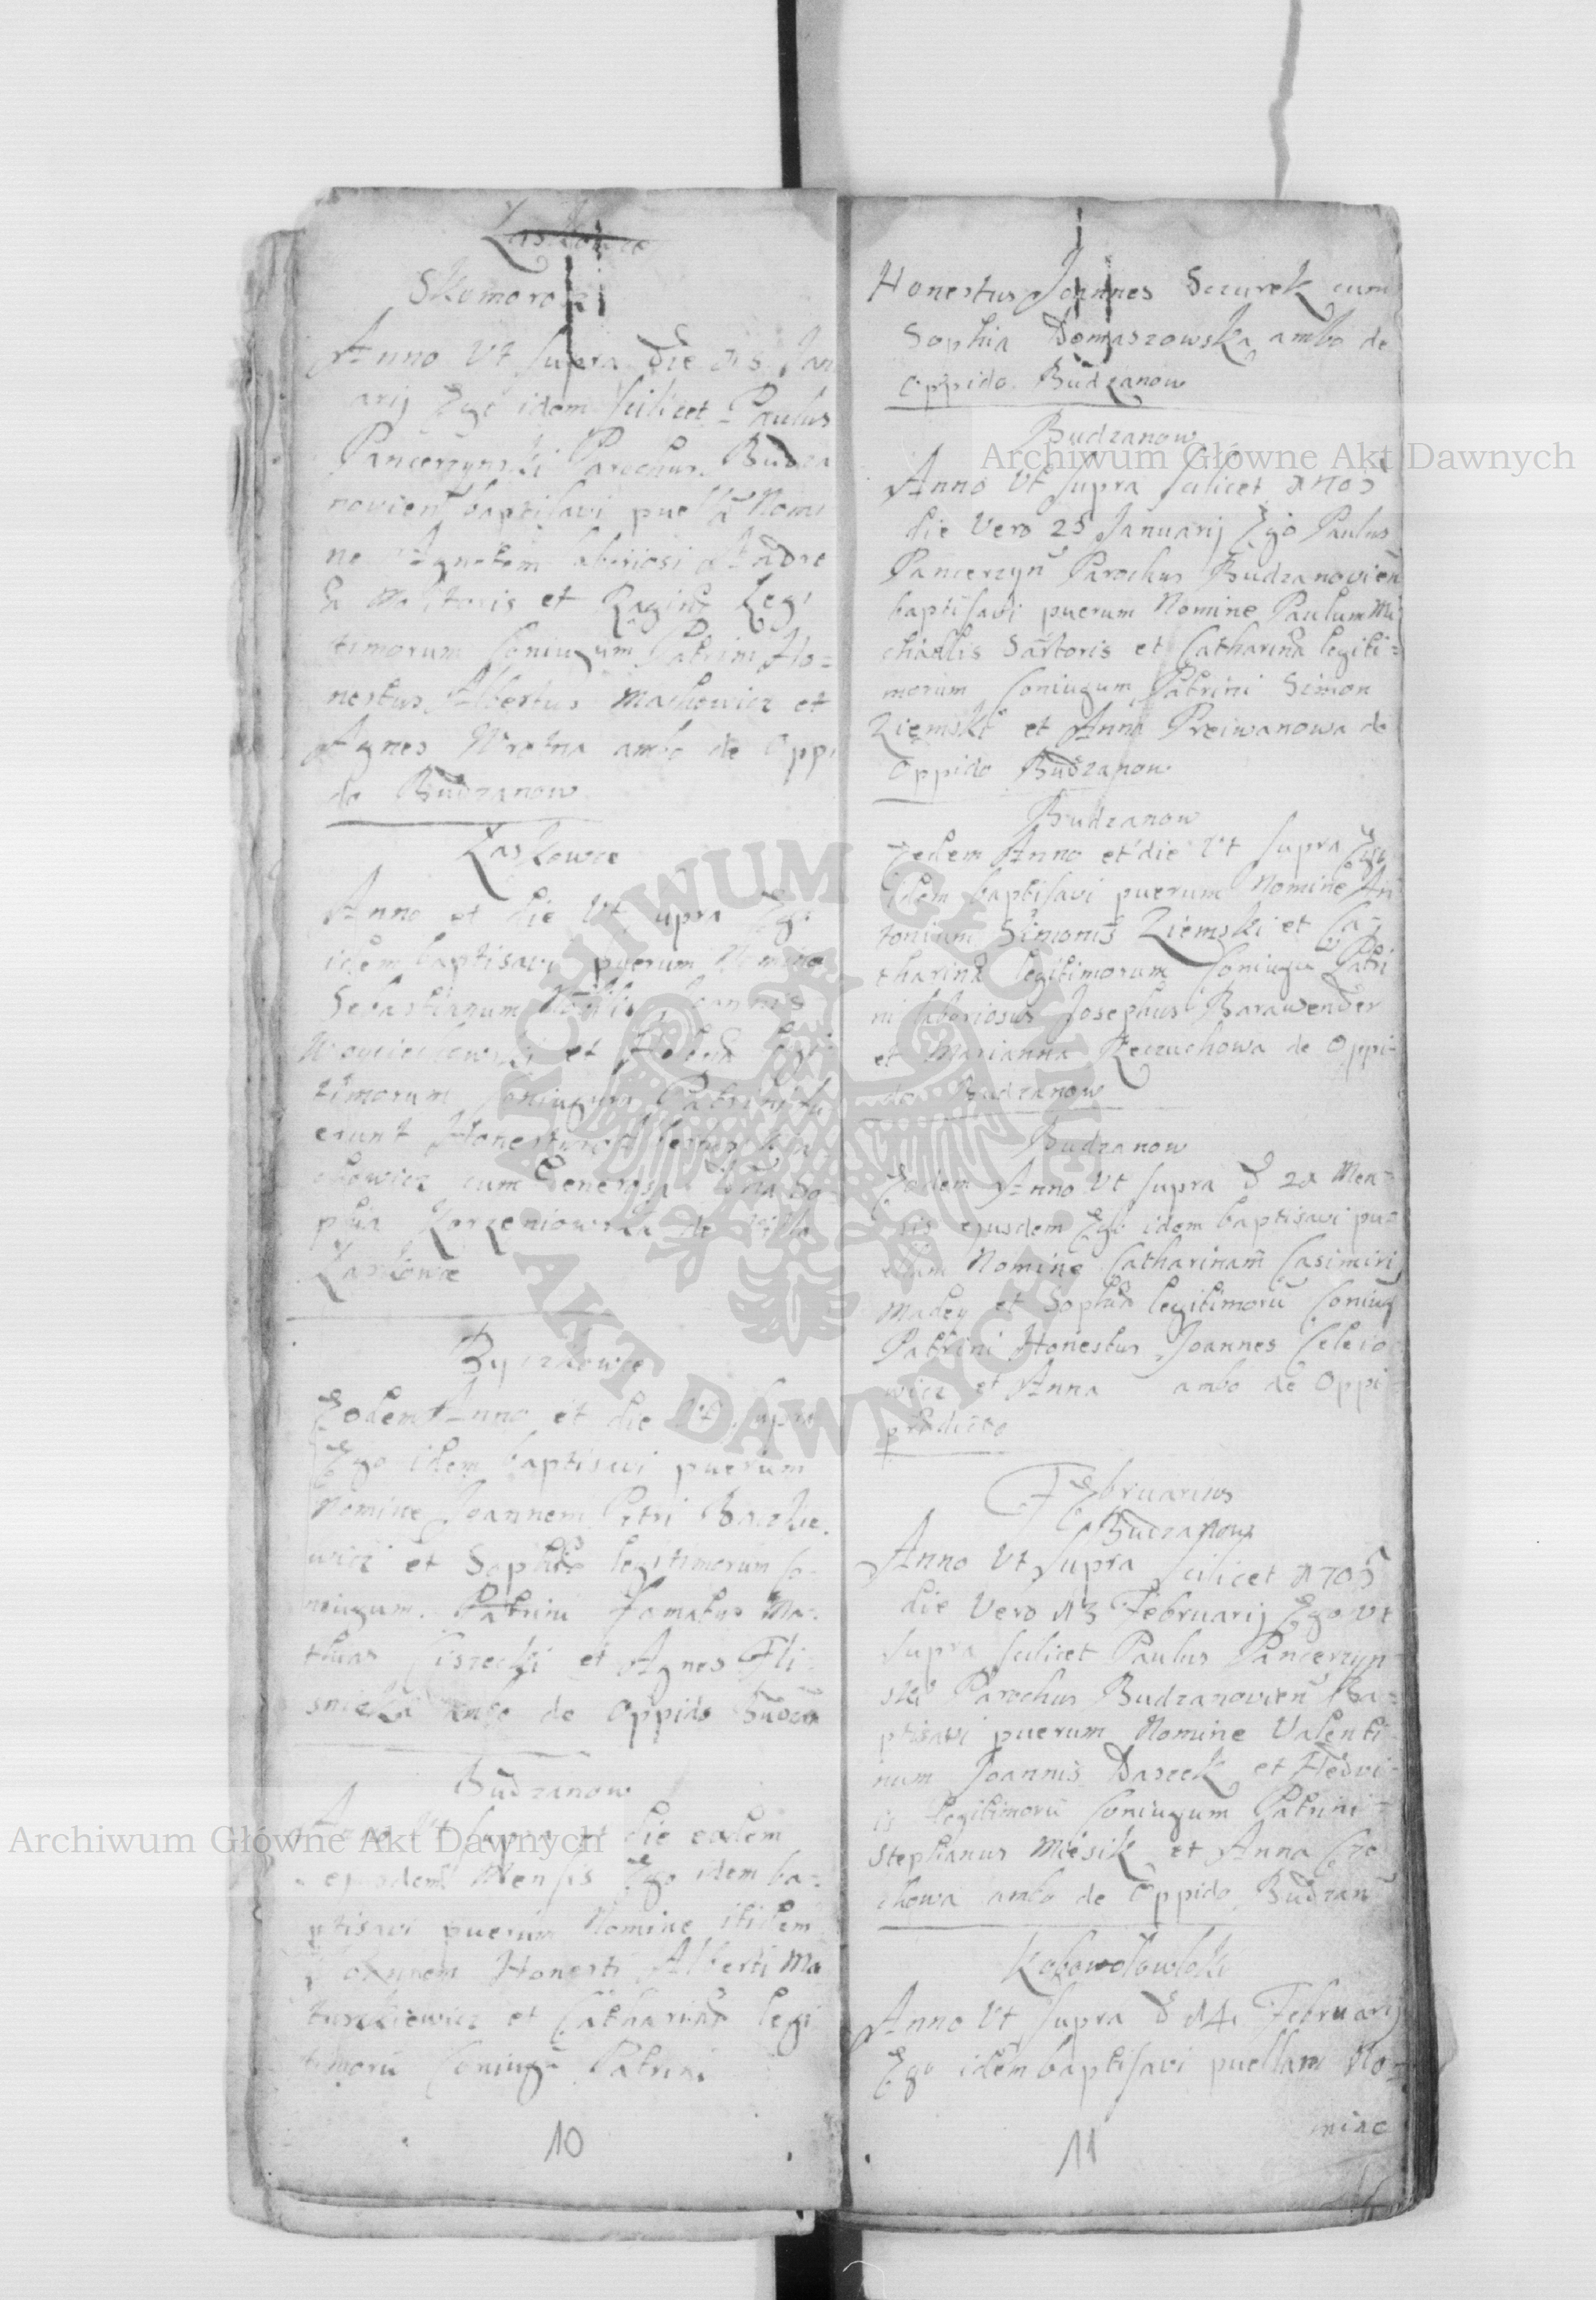 Laskowce
Skomoro
Anno Vt supra die 18 Jan
arij Ego idem scilicet Paulus
Pancerzynski Parochus Budza
novien baptisavi puellã Nomi
ne Agnetem laboriosi Andre
Molitoris et Legi
timorum Coniugum Patrini Ho=
nestus Albertus Machowicz et
Agnes ambo de Oppi
do Budzanow
Laskowce
Anno et die Vt supra Ego
idem baptisavi puerum Nomine
Sebastianum Joannis
et Helenæ legi
timorum Coniugum Patrini fu
erunt Honestus
chowicz cum Generosa So
phia Korzeniowska de Villa
Laskowce
Byczkowce
Eodem Anno et die Vt supra
Ego idem baptisavi puerum
Nomine Joannem Petri
wicz et Sophiæ legitimorum Co-
niugum. Patrini Famatus Ma-
thias Ciszecki et Agnes Fli
ambo de Oppido Budzan
Budzanow
Anno Vt supra et die eadem
ejusdem Mensis Ego idem ba-
ptisavi puerum Nomine itidem
Joannem Honesti Alberti Ma
turkiewicz et Catharinæ legi
timorũ Coniugũ Patrini
10
Honestus Joannes Sczurek cum
Sophia Domaszowska ambo de
Oppido Budzanow
Budzanow
Anno Vt supra scilicet 1705
die Vero 25 Januarij Ego Paulus
Pancerzyn Parochus Budzanovien
baptisavi puerum Nomine Paulum Mi
chaelis Sartoris et Catharinæ legiti=
morum Coniugum Patrini Simon
Ziemski et Anna Preiwanowa de
Oppido Budzanow
Budzanow
Eodem Anno et die Vt supra Ego
idem baptisavi puerum Nomine An
tonium Simonis Ziemski et Ca=
tharinæ legitimorum Coniugũ Patri
ni laboriosus Josephus Barawender
et Marianna Reczuchowa de Oppi-
do Budzanow
Budzanow
Eodem Anno Vt supra d 21 Men=
sis ejusdem Ego idem baptisavi pu=
ellam Nomine Catharinam Casimiri
Madey et Sophiæ legitimorũ Coniug
Patrini Honestus Joannes Celeio
wicz et Anna ambo de Oppi
prædicto
FEbruarius
Budzanow
Anno Vt supra scilicet 1705
die Vero 13 Februarij Ego Vt
supra scilicet Paulus Pancerzyn
ski Parochus Budzanovien Ba=
ptisavi puerum Nomine Valenti
num Joannis Daszek et Hedvi
is legitimorũ Coniugum Patrini
Stephanus Miesik et Anna Cze
chowa ambo de Oppido Budzan
Kobowołowloki
Anno Vt supra d 14 Februarij
Ego idem baptisavi puellam No=
mine
11
Archiwum Główne Akt Dawnych
Archiwum Główne Akt Dawnych
ARCHIWUM GŁÓWNE
AKT DAWNYCH